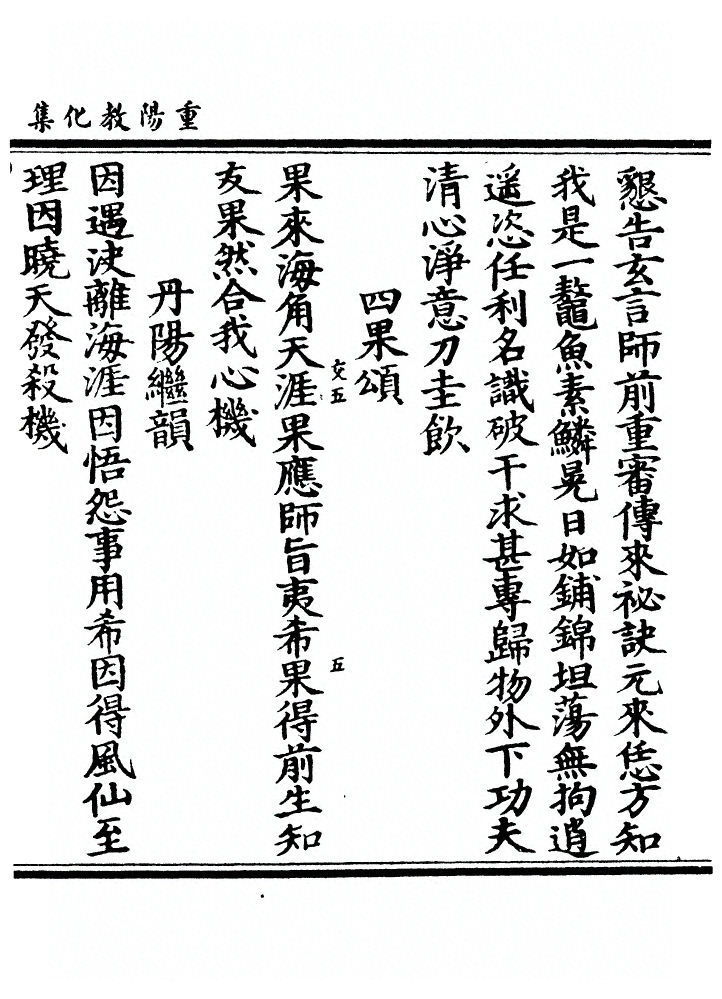 重陽教化集
懇告玄言師前重審傳來祕訣元來恁方知
我是一鼇魚素鱗晃日如鋪錦坦蕩無拘逍
遥恣任利名識破干求甚專歸物外下功夫
清心淨意刀圭飲
四果頌
果來海角天涯果應師旨夷希果得前生知
友果然合我心機
交五
五
丹陽繼韻
因遇決離海涯因悟怨事用希因得風仙至
理因曉天發殺機